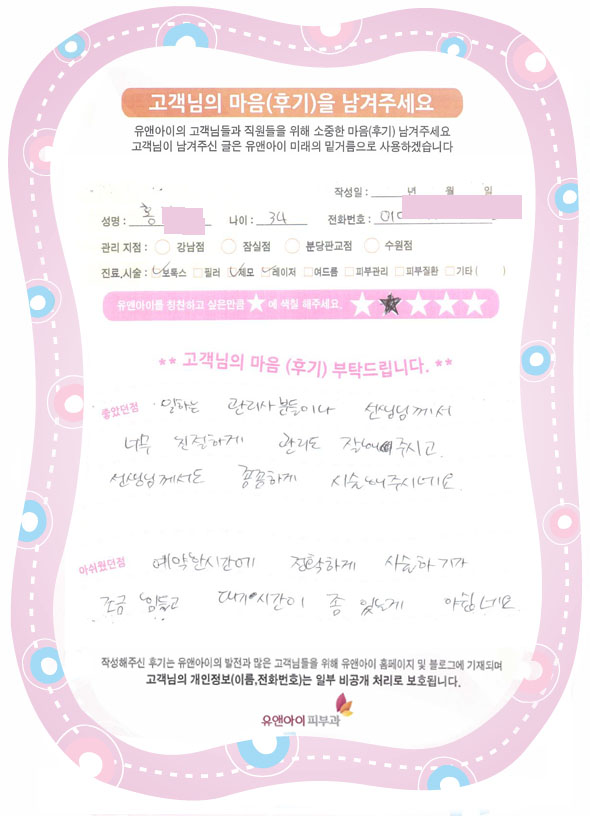 고객님의 마음(후기)을 남겨주세요
유앤아이의 고객님들과 직원들을 위해 소중한 마음(후기) 남겨주세요
고객님이 남겨주신 글은 유앤아이 미래의 밑거름으로 사용하겠습니다
작성일 : 년 월 일
성명 : 홍 나이 : 34 전화번호 : 01
관리 지점 : 강남점 잠실점 분당판교점 수원점
진료,시술 : 보톡스 필러 제모 레이저 여드름 피부관리 피부질환 기타 ( )
유앤아이를 칭찬하고 싶은만큼 ★ 에 색칠 해주세요. ★ ★ ★ ★ ★
** 고객님의 마음 (후기) 부탁드립니다. **
좋았던점 일하는 관리사분들이나 선생님께서
너무 친절하게 관리도 잘해주시고.
선생님께서도 꼼꼼하게 시술해주시네요.
아쉬웠던점 예약한시간에 정확하게 시술하기가
조금 힘들고 대기시간이 좀 있는게 아쉽네요.
작성해주신 후기는 유앤아이의 발전과 많은 고객님들을 위해 유앤아이 홈페이지 및 블로그에 기재되며
고객님의 개인정보(이름,전화번호)는 일부 비공개 처리로 보호됩니다.
유앤아이피부과